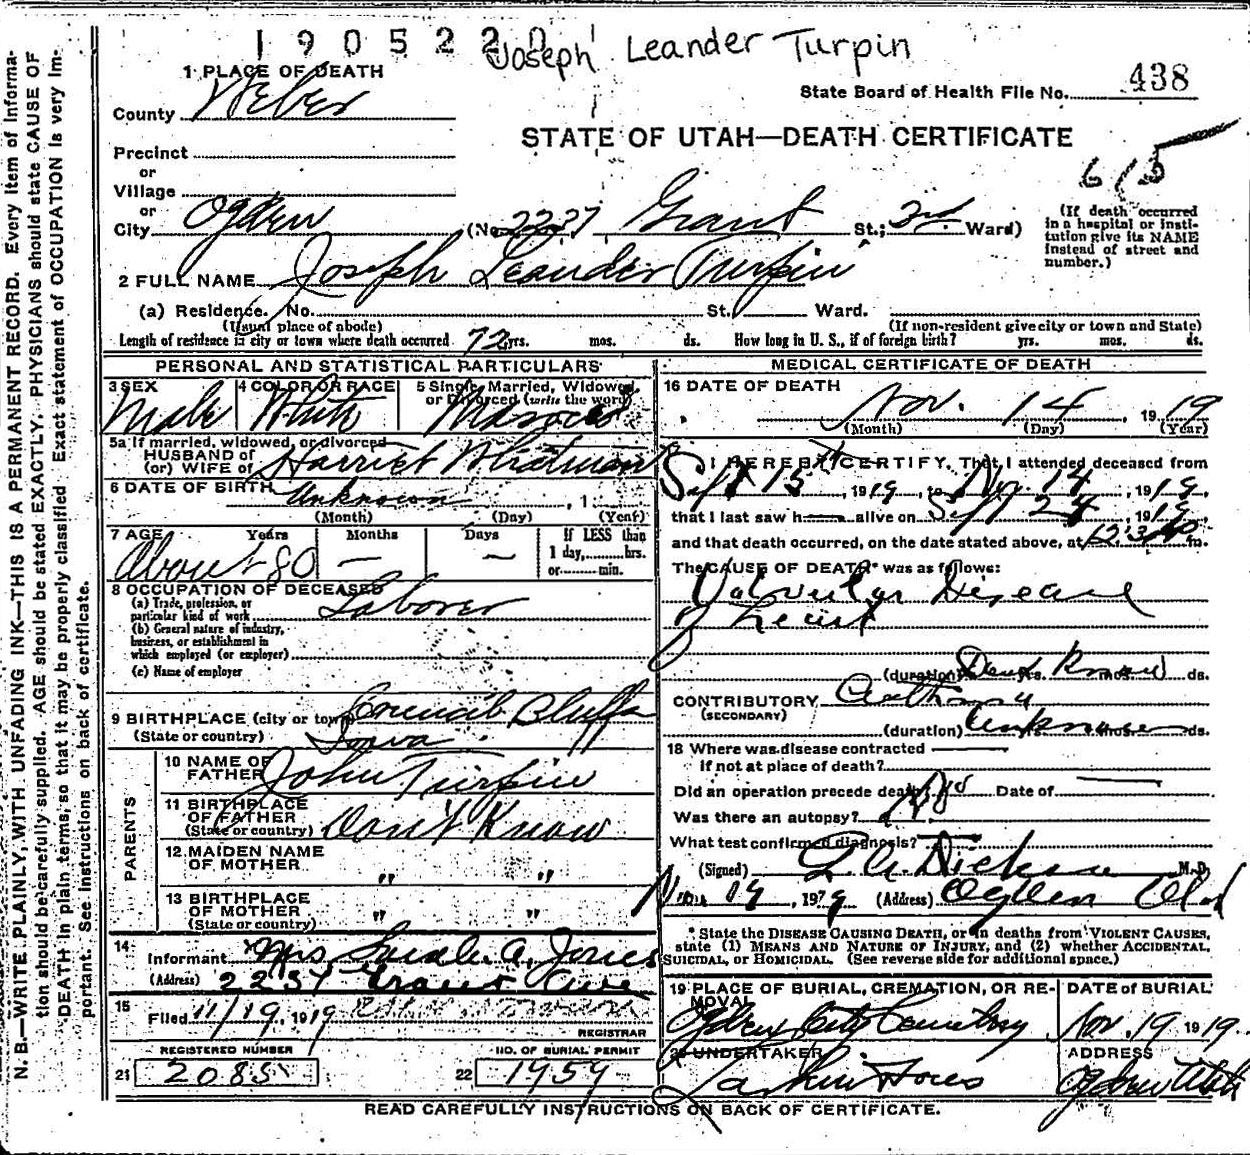 1905220
Joseph Leander Turpin
1 PLACE OF DEATH
State Board of Health File No. 438
County Weber
STATE OF UTAH—DEATH CERTIFICATE
Precinct
or
Village
or
City Ogden (No. 2237 Grant St.; 3rd Ward)
615
(If death occurred
in a hospital or insti-
tution give its NAME
instead of street and
number.)
2 FULL NAME Joseph Leander Turpin
(a) Residence. No. St. Ward.
(Usual place of abode) (If non-resident give city or town and State)
Length of residence in city or town where death occurred 72 yrs. mos. ds. How long in U. S., if of foreign birth? yrs. mos. ds.
PERSONAL AND STATISTICAL PARTICULARS
3 SEX 4 COLOR OR RACE 5 Single, Married, Widowed,
or Divorced (write the word)
Male White
5a If married, widowed, or divorced
HUSBAND of
(or) WIFE of Harriet
6 DATE OF BIRTH Unknown , 1
(Month) (Day) (Year)
7 AGE Years Months Days If LESS than
1 day, hrs.
or min.
About 80 — —
8 OCCUPATION OF DECEASED
(a) Trade, profession, or
particular kind of work Laborer
(b) General nature of industry,
business, or establishment in
which employed (or employer)
(c) Name of employer
9 BIRTHPLACE (city or town) Council Bluffs
(State or country) Iowa
PARENTS
10 NAME OF
FATHER John Turpin
11 BIRTHPLACE
OF FATHER
(State or country) Don't Know
12 MAIDEN NAME
OF MOTHER " "
13 BIRTHPLACE
OF MOTHER
(State or country) " "
14
Informant Mrs A. Jones
(Address) 2237 Grant Ave
15
Filed 11/19, 1919
REGISTRAR
REGISTERED NUMBER NO. OF BURIAL PERMIT
21 2085 22 1959
MEDICAL CERTIFICATE OF DEATH
16 DATE OF DEATH
Nov. 14 , 1919
(Month) (Day) (Year)
I HEREBY CERTIFY, That I attended deceased from
Sept 15th , 1919 , to Nov. 14 , 1919,
that I last saw h alive on Sept 24 , 1919,
and that death occurred, on the date stated above, at m.
The CAUSE OF DEATH* was as follows:
Valvular Disease
of heart
(duration) Dont Know yrs. mos. ds.
CONTRIBUTORY Asthma
(SECONDARY)
(duration) Unknown yrs. mos. ds.
18 Where was disease contracted
if not at place of death?
Did an operation precede death? No Date of
Was there an autopsy?
What test confirmed diagnosis?
(Signed) M. D.
Nov 19 , 1919 (Address) Ogden
* State the DISEASE CAUSING DEATH, or in deaths from VIOLENT CAUSES,
state (1) MEANS AND NATURE OF INJURY, and (2) whether ACCIDENTAL,
SUICIDAL, or HOMICIDAL. (See reverse side for additional space.)
19 PLACE OF BURIAL, CREMATION, OR RE-
MOVAL
Ogden City Cemetery
DATE of BURIAL
Nov. 19 1919
20 UNDERTAKER
Larkin
ADDRESS
Ogden Utah
READ CAREFULLY INSTRUCTIONS ON BACK OF CERTIFICATE.
N. B.—WRITE PLAINLY, WITH UNFADING INK—THIS IS A PERMANENT RECORD. Every item of informa-
tion should be carefully supplied. AGE should be stated EXACTLY. PHYSICIANS should state CAUSE OF
DEATH in plain terms, so that it may be properly classified. Exact statement of OCCUPATION is very im-
portant. See instructions on back of certificate.